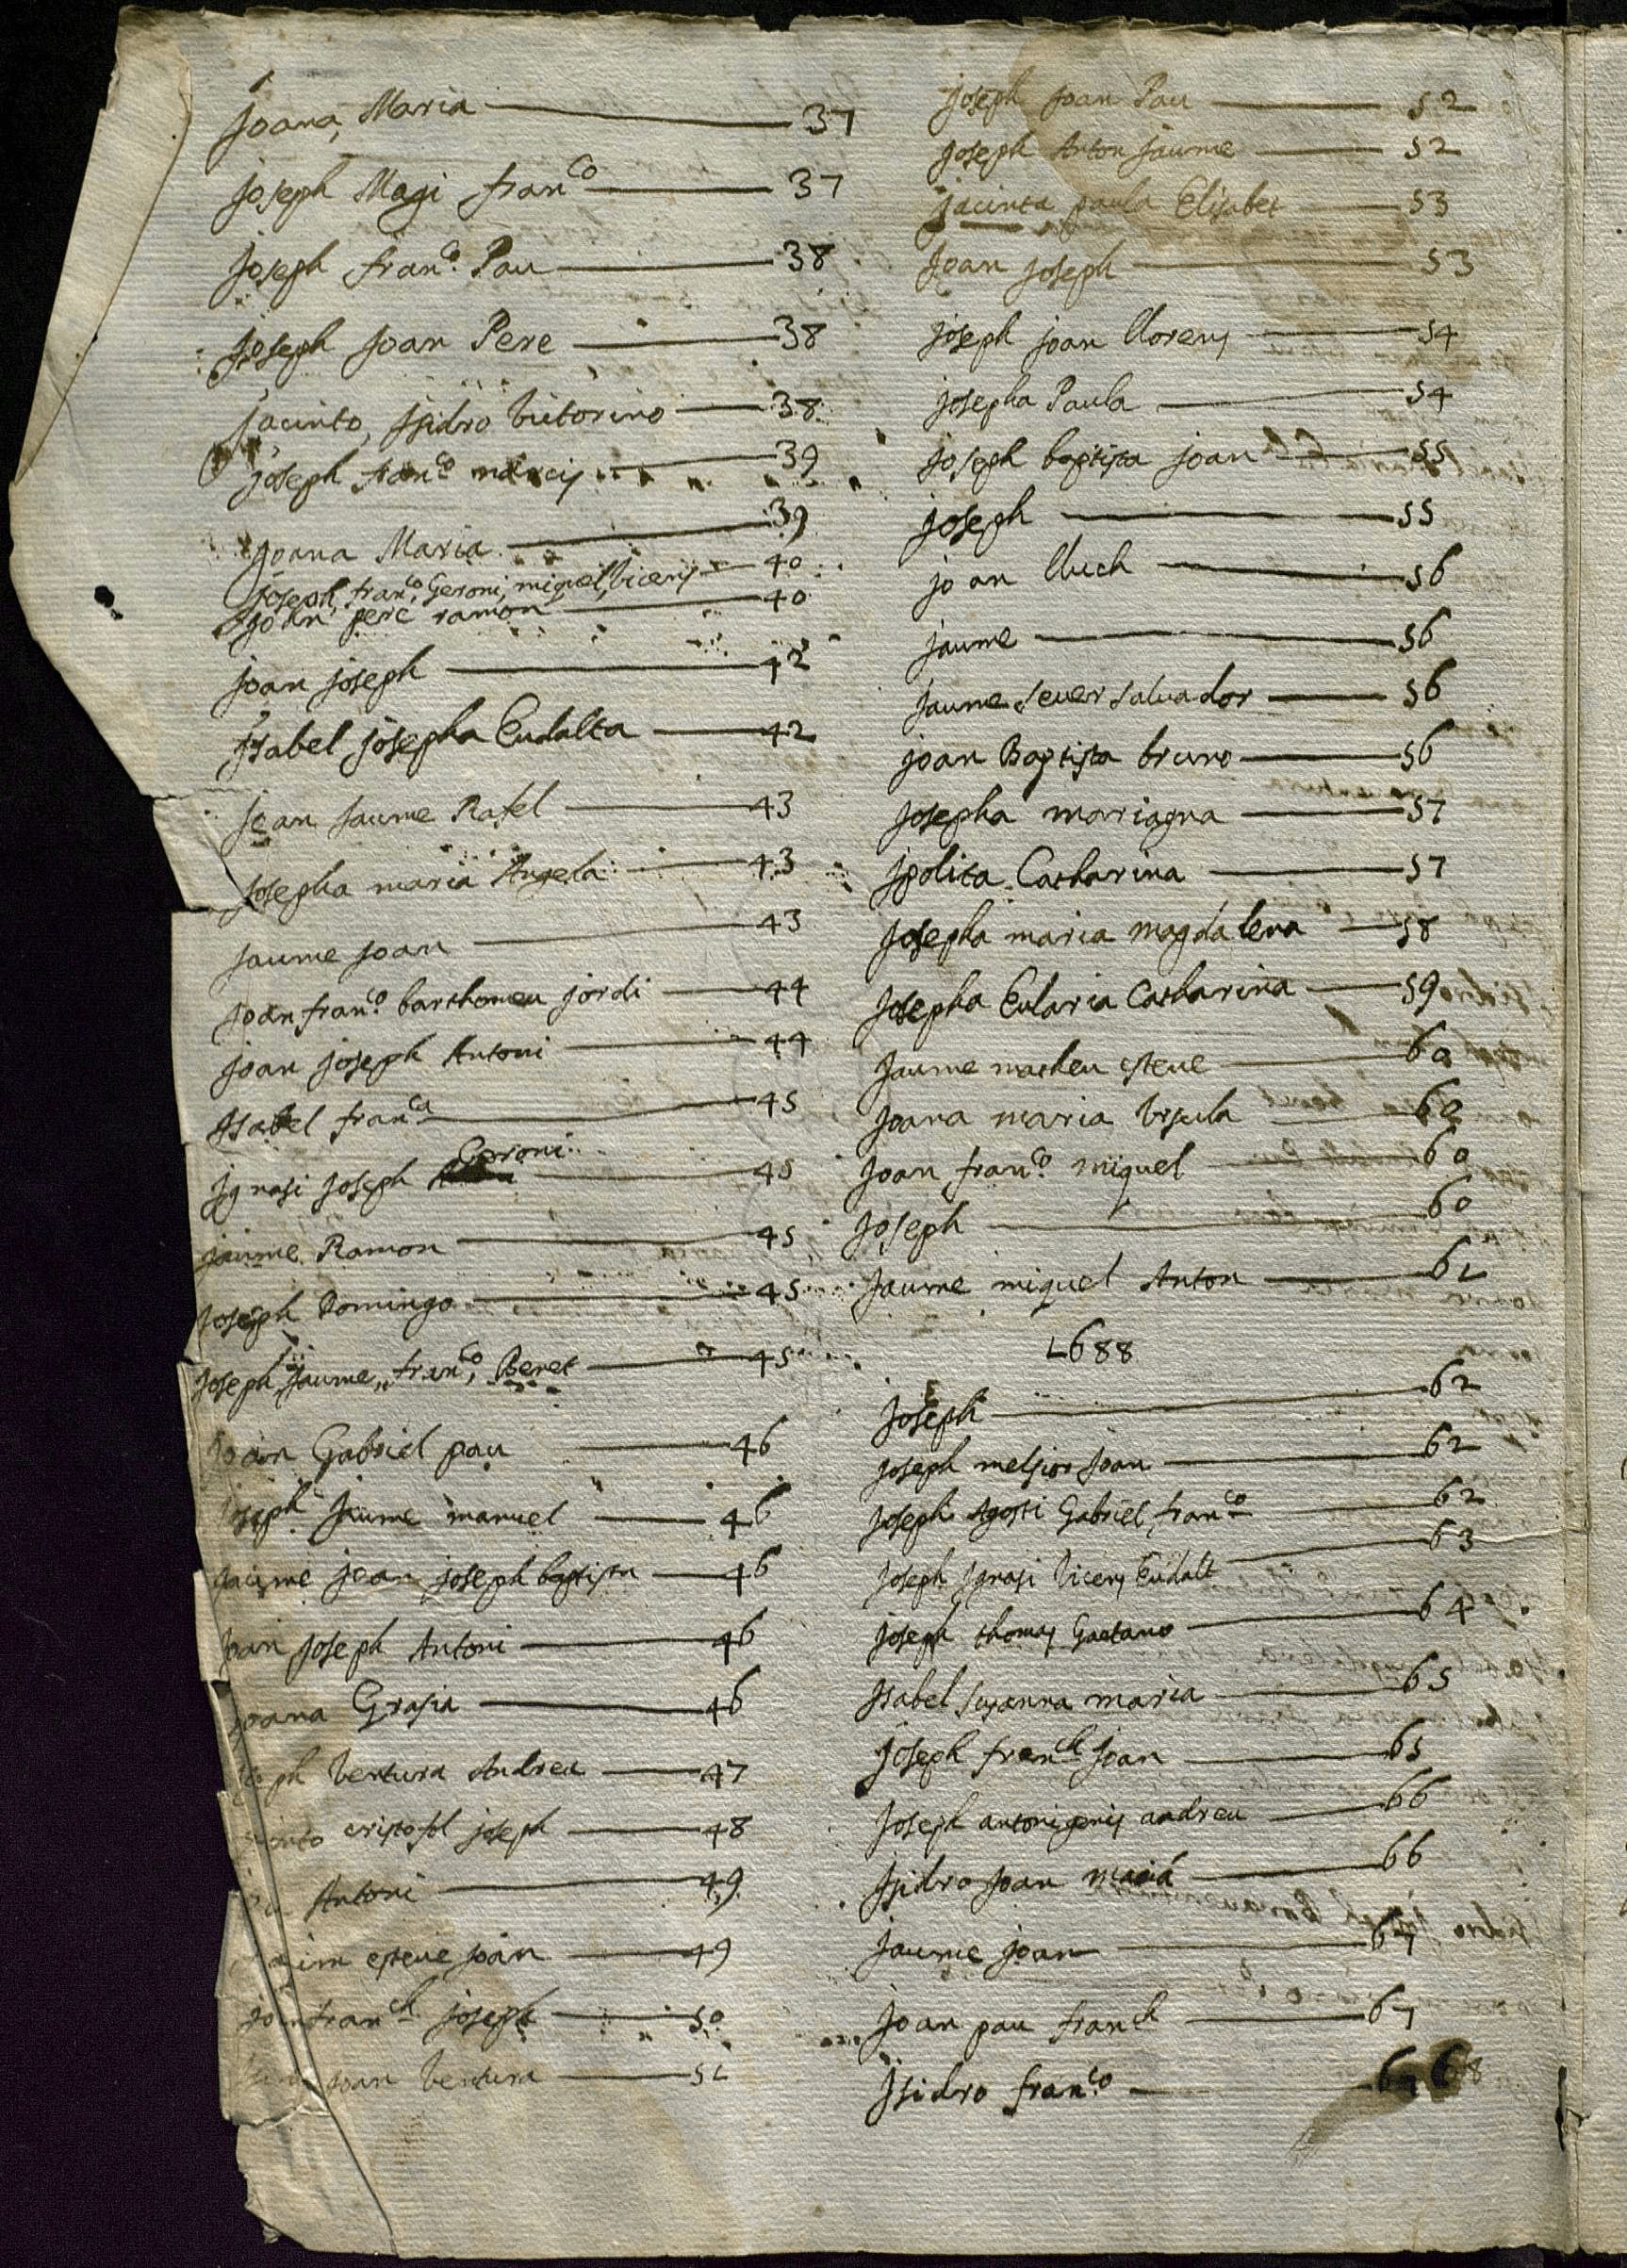 Joana, Maria 37
Joseph Magi fran.co 37
Joseph fran.co Pau 38
Joseph Joan Pere 38
Jacinto, Isidro Victorino 38
Joseph fran.co narcis 39
Joana Maria 39
Joseph, fran.co, Geroni, miquel, Vicens 40
Joan pere ramon 40
Joan Joseph 42
Isabel Josepha Eudalta 42
Joan Jaume Rafel 43
Josepha maria Angela 43
Jaume Joan 43
Joan fran.co barthomeu jordi 44
Joan Joseph Antoni 44
Isabel fran.ca 45
Geroni
Ignasi Joseph 45
Jaume Ramon 45
Joseph Domingo 45
Joseph, Jaume, fran.co, Benet 45
Joan Gabriel pau 46
Joseph Jaume manuel 46
Jaume joan joseph baptista 46
Joan Joseph Antoni 46
Joana Grasia 46
ph Ventura Andreu 47
into cristofol joseph 48
Antoni 49
esteve Joan 49
fran.ch joseph 50
Joan Ventura 51
Joseph Joan Pau 52
Joseph Anton Jaume 52
Jacinta paula Elisabet 53
Joan Joseph 53
Joseph joan llorens 54
Josepha Paula 54
Joseph baptista joan 55
Joseph 55
joan lluch 56
jaume 56
Jaume sever salvador 56
joan Baptista bruno 56
Josepha mariagna 57
Ipolita Catharina 57
Josepha maria magdalena 58
Josepha Eularia Catharina 59
Jaume matheu esteve 60
Joana maria Ursula 60
Joan fran.co miquel 60
Joseph 60
Jaume miquel Anton 61
1688
Joseph 62
Joseph melsior Joan 62
Joseph Agosti Gabriel fran.co 62
Joseph Ignasi Vicens Eudalt 63
Joseph thomas Gaetano 64
Isabel susanna maria 65
Joseph fran.ch Joan 65
Joseph antoni genis andreu 66
Isidro Joan maciá 66
Jaume joan 67
Joan pau fran.ch 67
Isidro fran.co 68